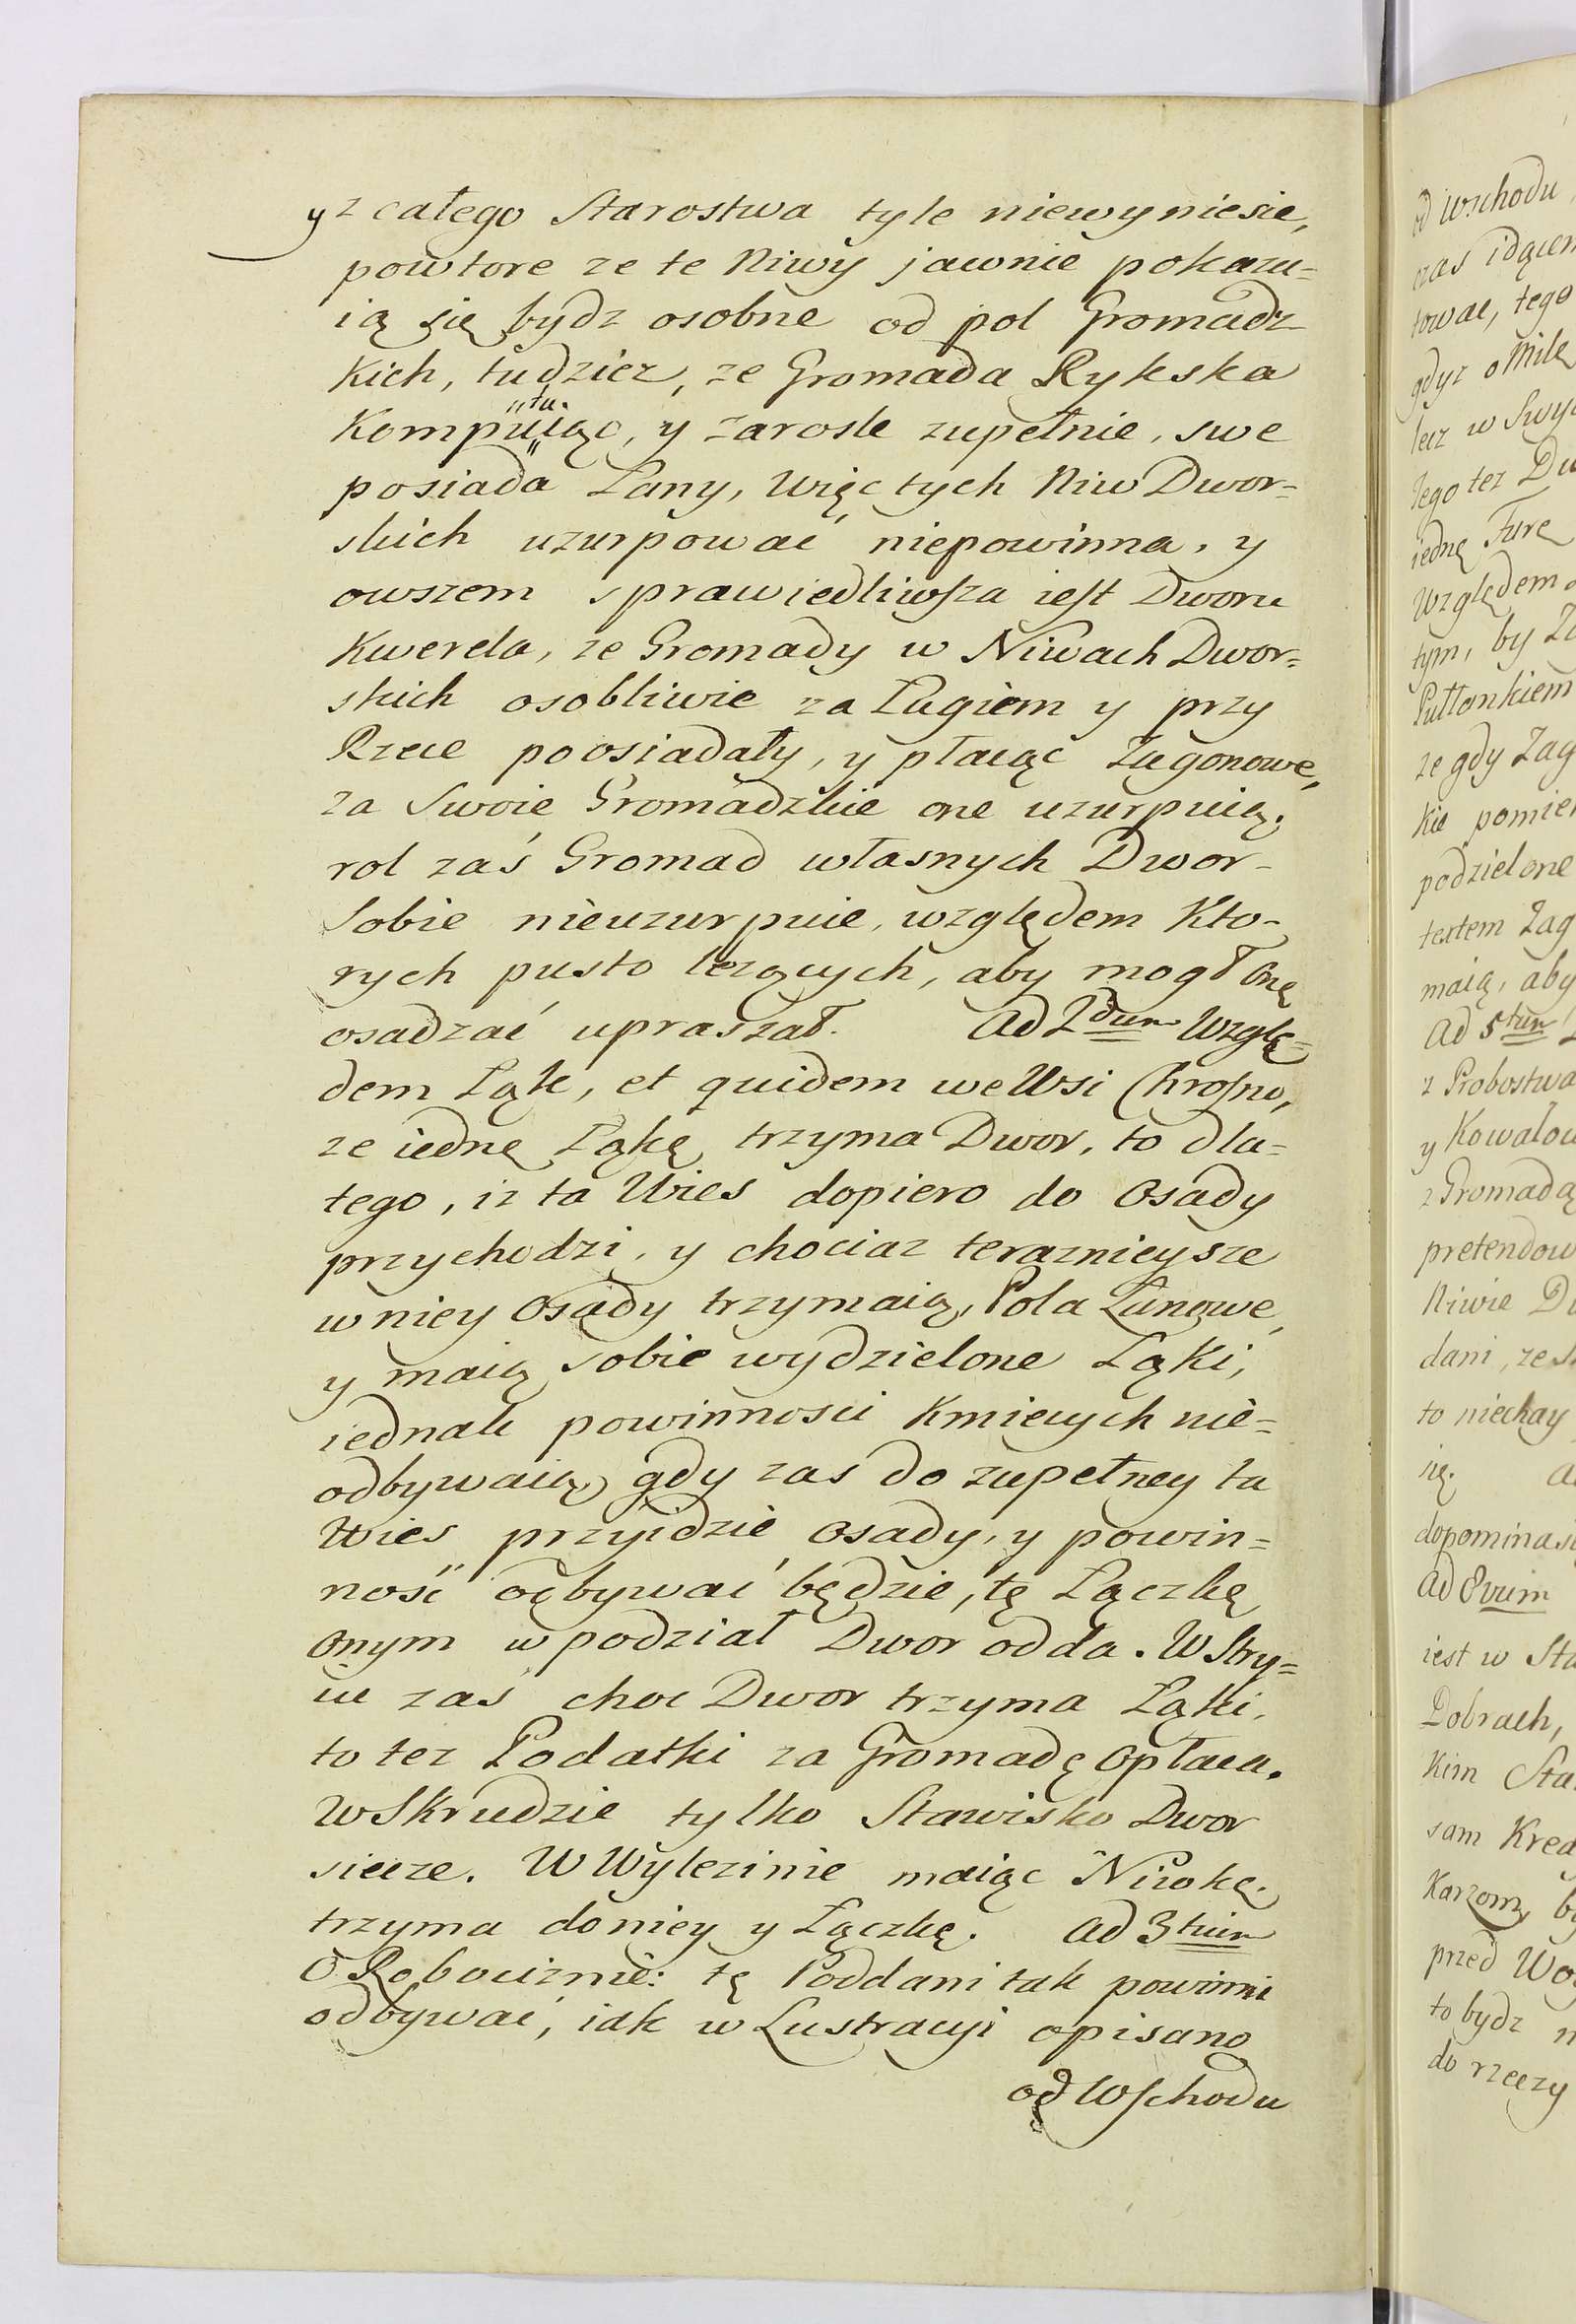 y z całego Starostwa tyle niewyniesie,
powtore ze te Niwy jawnie pokazu=
ią się bydz osobne od pol Gromadz-
kich, tudziez, ze Gromada Rykska
Komputuiąc, y zarosle zupełnie, swe
posiada Łany, więc tych Niw Dwor=
skich uzurpować niepowinna, y
owszem sprawiedliwsza iest Dworu
Kwerela, ze Gromady w Niwach Dwor=
skich osobliwie za Ługiem y przy
Rzece poosiadały, y płacąc Zagonowe,
za Swoie Gromadzkie one uzurpuią,
rol zaś Gromad własnych Dwor-
Sobie nieuzurpuie, względem Kto-
rych pusto lezących, aby mogł onę
osadzać upraszał. Ad 2dum Wzglę=
dem Łąk, et quidem we Wsi Chrosno,
ze iednę Łąkę trzyma Dwor, to dla=
tego, iz ta Wies dopiero do Osady
przychodzi, y chociaz teraznieysze
w niey Osady trzymaią, Pola Łanowe,
y maią sobie wydzielone Łąki,
iednak powinnosci Kmiecych nie=
odbywaią, gdy zas do zupełney ta
Wies przyidzie osady, y powin=
ność odbywać będzie, tę Łączkę
onym w podział Dwor odda. W Stry=
iu zaś choc Dwor trzyma Łąki,
to tez Podatki za Gromadę opłaca.
W Skrudzie tylko Stawisko Dwor
siecze. W Wylezinie maiąc Niwkę,
trzyma do niey y Łączkę. Ad 3tium
O Robociznie: tę Poddani tak powinni
odbywać, iak w Lustracyi opisano
od Wschodu
od Wschodu
czas idącem
towac, tego
gdyz o Milę
lecz w Swy
Tego tez Dw
iednę Furę
Względem
tym, by Za
Pułtonkiem
ze gdy Zag
kie pomie
podzielone
textem Zag
maią, aby
Ad 5tum
z Probostwa
y Kowalow
z Gromadą
pretendow
Niwie D
dani, ze s
to niechay
się. A
dopomina się
Ad 8vum
iest w Sta
Dobrach,
kim Sta
sam Kred
Karzom, by
przed Wo
to bydz n
do rzeczy